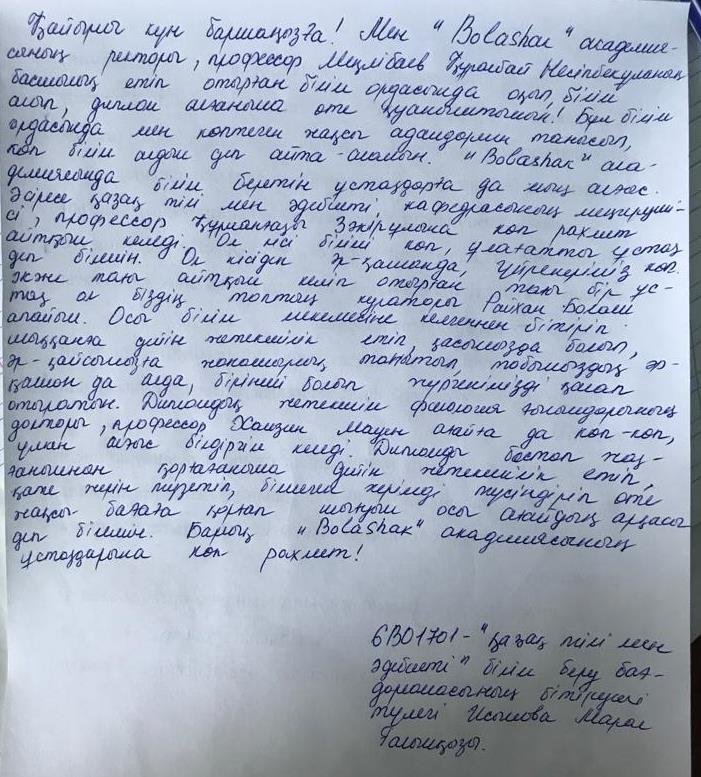 Қайырлы күн баршаңызға! Мен "Bolashak" академия-
сының ректоры, профессор Меңлібаев Құралбай Несіпбекұлының
басшылық етіп отырған білім ордасында оқып, білім
алып, диплом алғаныма өте қуаныштымын! Бұл білім
ордасында мен көптеген жақсы адамдармен танысып,
көп білім алдым деп айта-аламын. "Bolashak" ака-
демиясында білім беретін ұстаздарға да мың алғыс.
Әсіресе қазақ тілі мен әдебиеті кафедрасының меңгеруші-
сі, профессор Құрманғазы Зәкірұлына көп рахмет
айтқым келеді. Ол кісі білімі көп, ұлағатты ұстаз
деп білемін. Ол кісіден әр-қашанда, үйренеріміз көп.
Және тағы айтқым келіп отырған тағы бір ұс-
таз ол біздің топтың кураторы Райхан Болат
апайым. Осы білім мекемесіне келгеннен бітіріп
шыққанға дейін жетекшілік етіп, қасымызда болып,
әр-қайсымызға жанашырлық танытып, тобымыздың әр-
қашан да алда, бірінші болып жүргенімізді қалап
отыратын. Дипломдық жетекшім филология ғылымдарының
докторы, профессор Хамзин Мәден ағайға да көп-көп,
ұлкан алғыс білдіргім келеді. Дипломды бастап жаз-
ғанымнан қорғағаныма дейін жетекшілік етіп,
қате жерін түзетіп, білмеген жерімді түсіндіріп өте
жақсы бағаға қорғап шығуым осы ағайдың арқасы
деп білемін. Барлық "Bolashak" академиясының
ұстаздарына көп рахмет!
6В01701-"қазақ тілі мен
әдебиеті" білім беру бағ-
дарламасының бітіруші
түлегі Исынова Марал
Ғалымқызы.